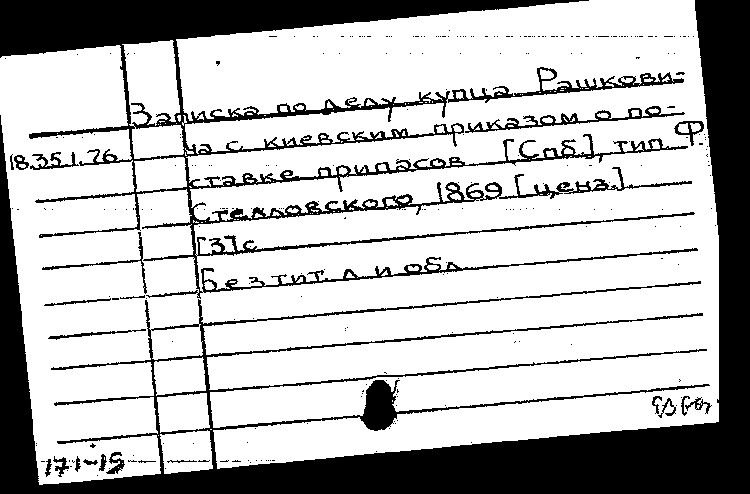 Записка по делу купца Рашкови=
ча с киевским приказом о по-
18.35.1.76 ставке припасов [Спб.], тип. Ф.
Стелловского, 1869 [ценз.].
[3] с
Без тит. л и обл
171-15